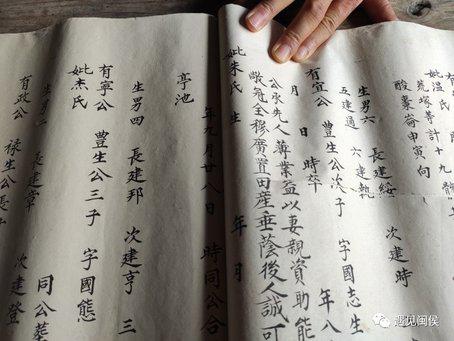 妣温氏
荒塚等計十九
酸棗崙申寅向
生男六 長建綏 次建時
五建通 六建乾
有宜公 豊生公次子 字國志 生
年八
月 日 時卒
公承先人薄業益以妻親資助能
儆冠全穆廣置田產垂蔭後人誠可
妣朱氏 生 年 月
年九月廿八日 時同公合
亭池
生男四 長建邦 次建亨 三
有寧公 豊生公三子 字國態
妣杰氏
生男二 長建章 次建登
同公葬
有政公 禄生公長
遇见闽侯